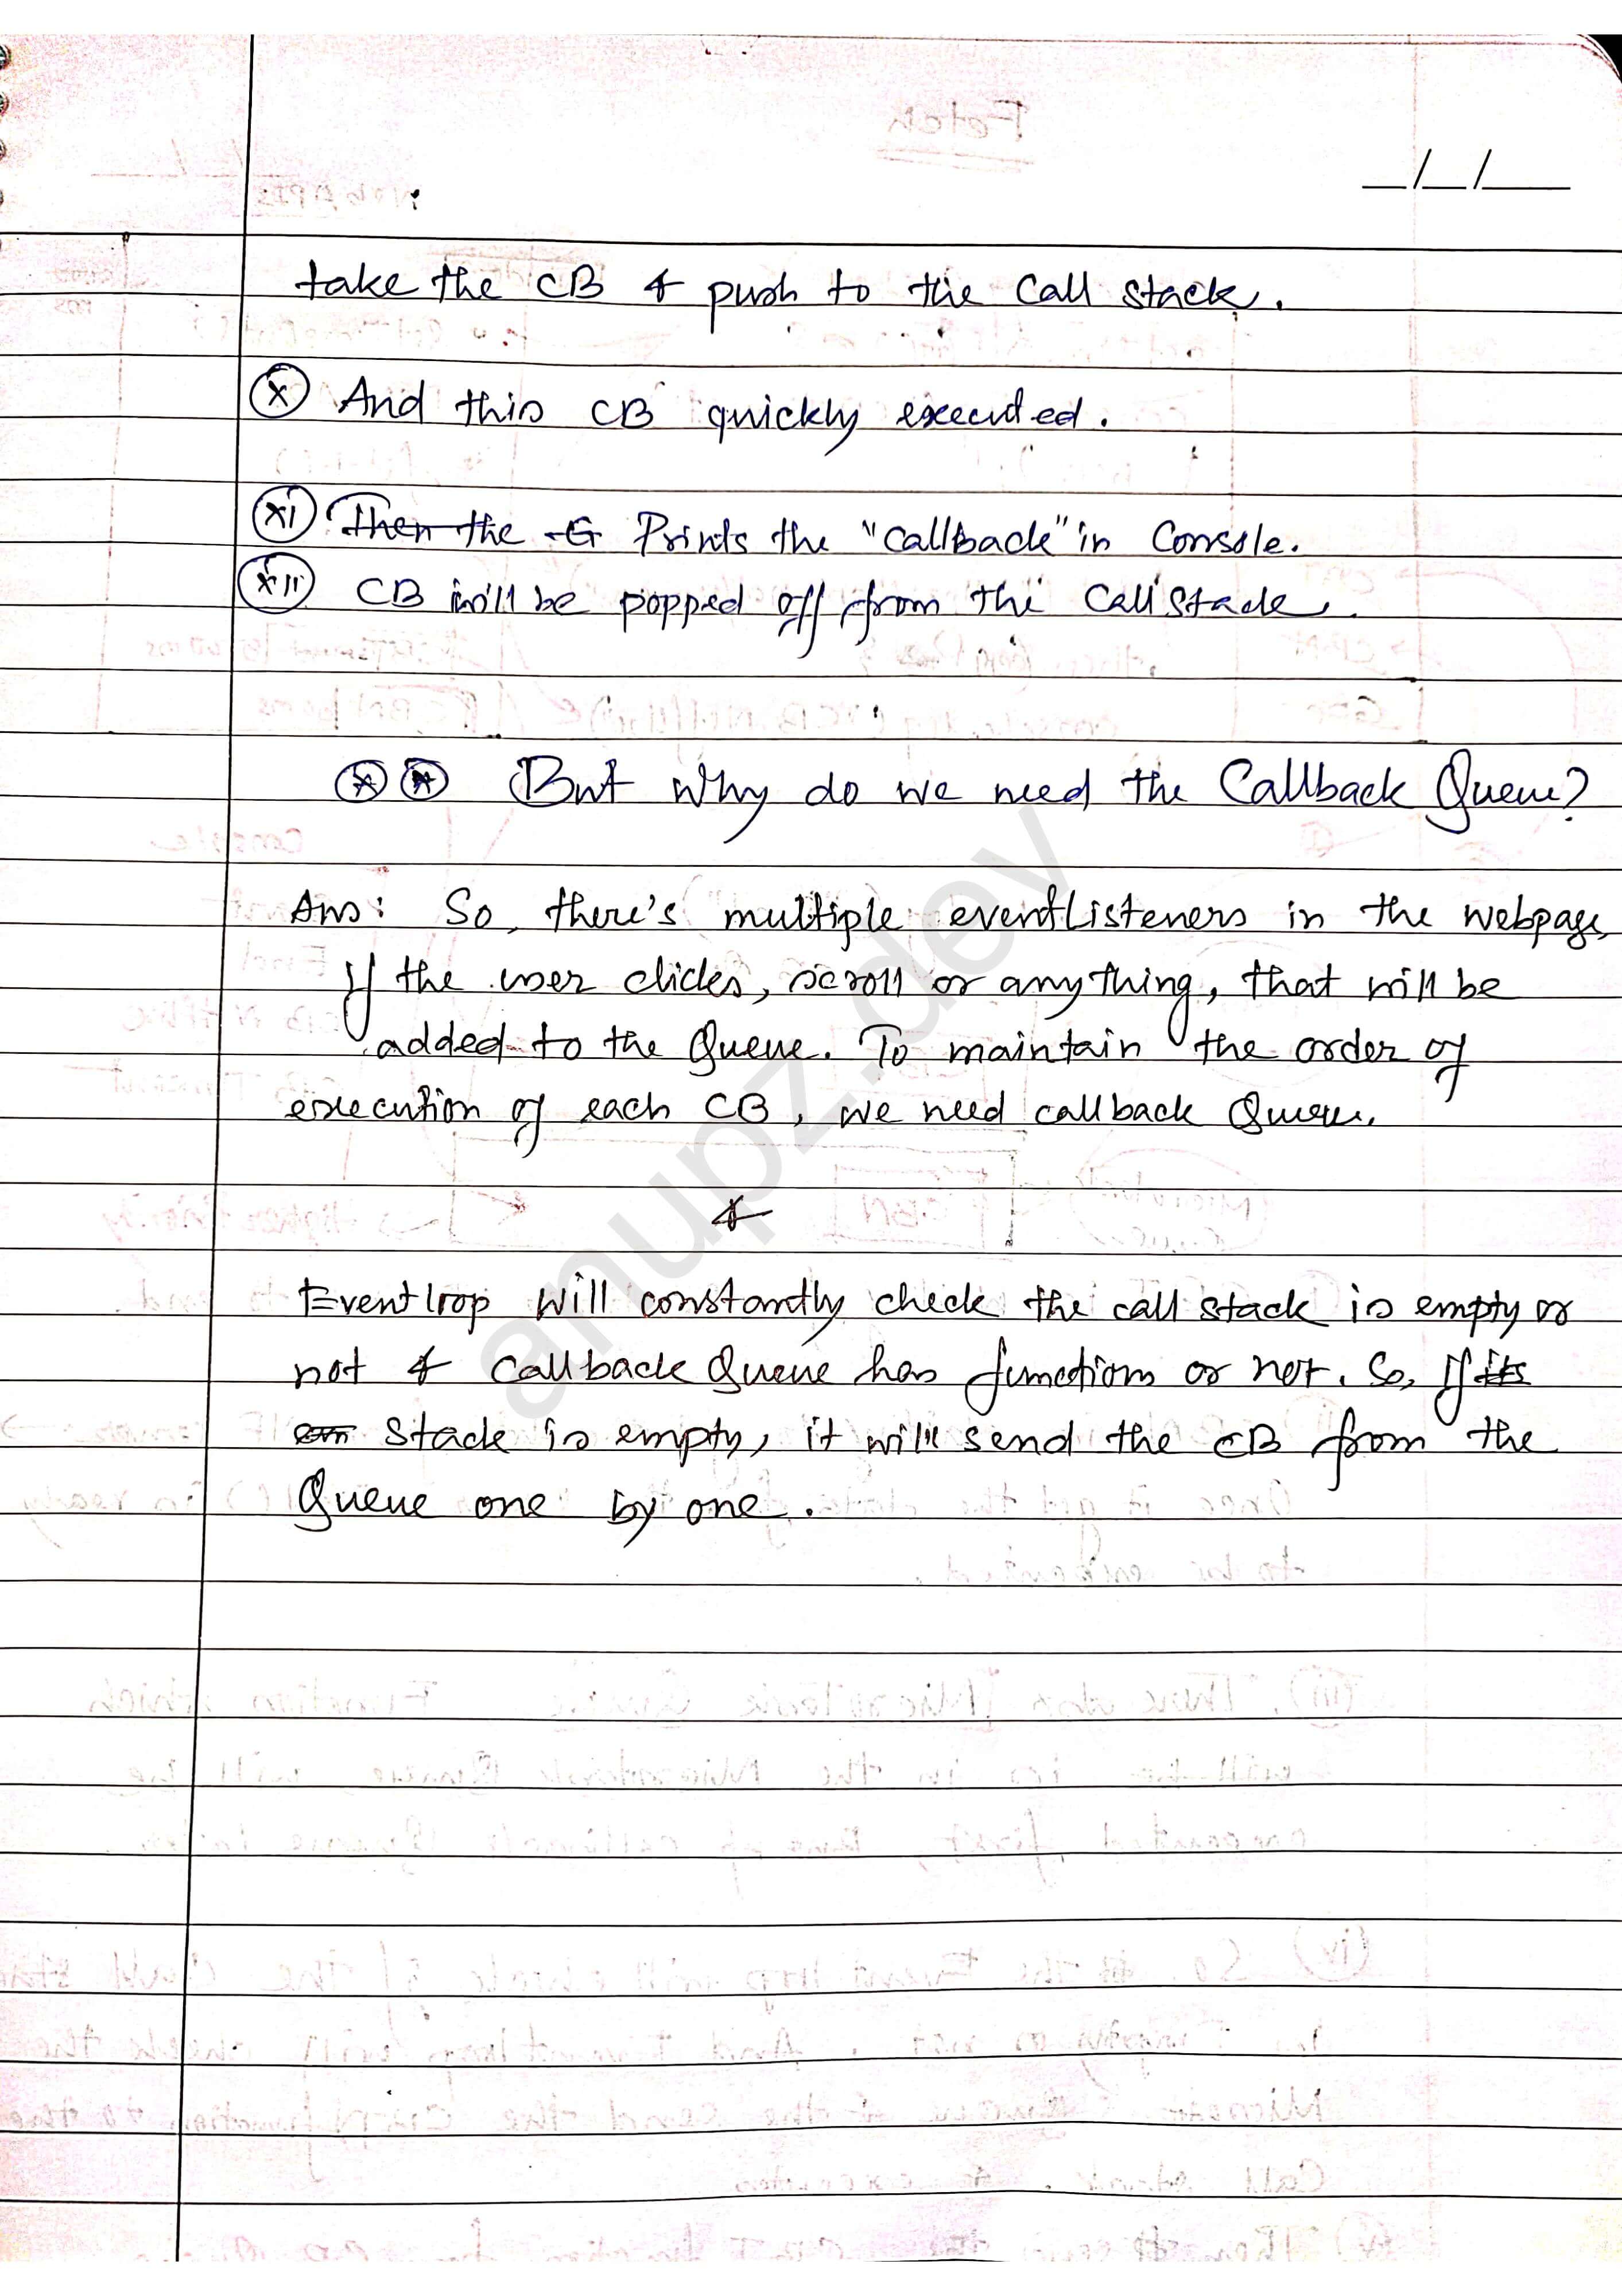 _/_/__
take the CB & push to the Call stack.
(x) And this CB quickly executed.
(xi) Then the G Prints the "Callback" in Console.
(xii) CB will be popped off from the Call Stack.
But Why do we need the Callback Queue?
Ans: So, there's multiple eventListeners in the webpage,
If the user clicks, scroll or anything, that will be
added to the Queue. To maintain the order of
execution of each CB, we need callback Queue.
&
Event loop will constantly check the call stack is empty or
not & Callback Queue has functions or not. So, If its
stack is empty, it will send the CB from the
Queue one by one.
anupz.dev